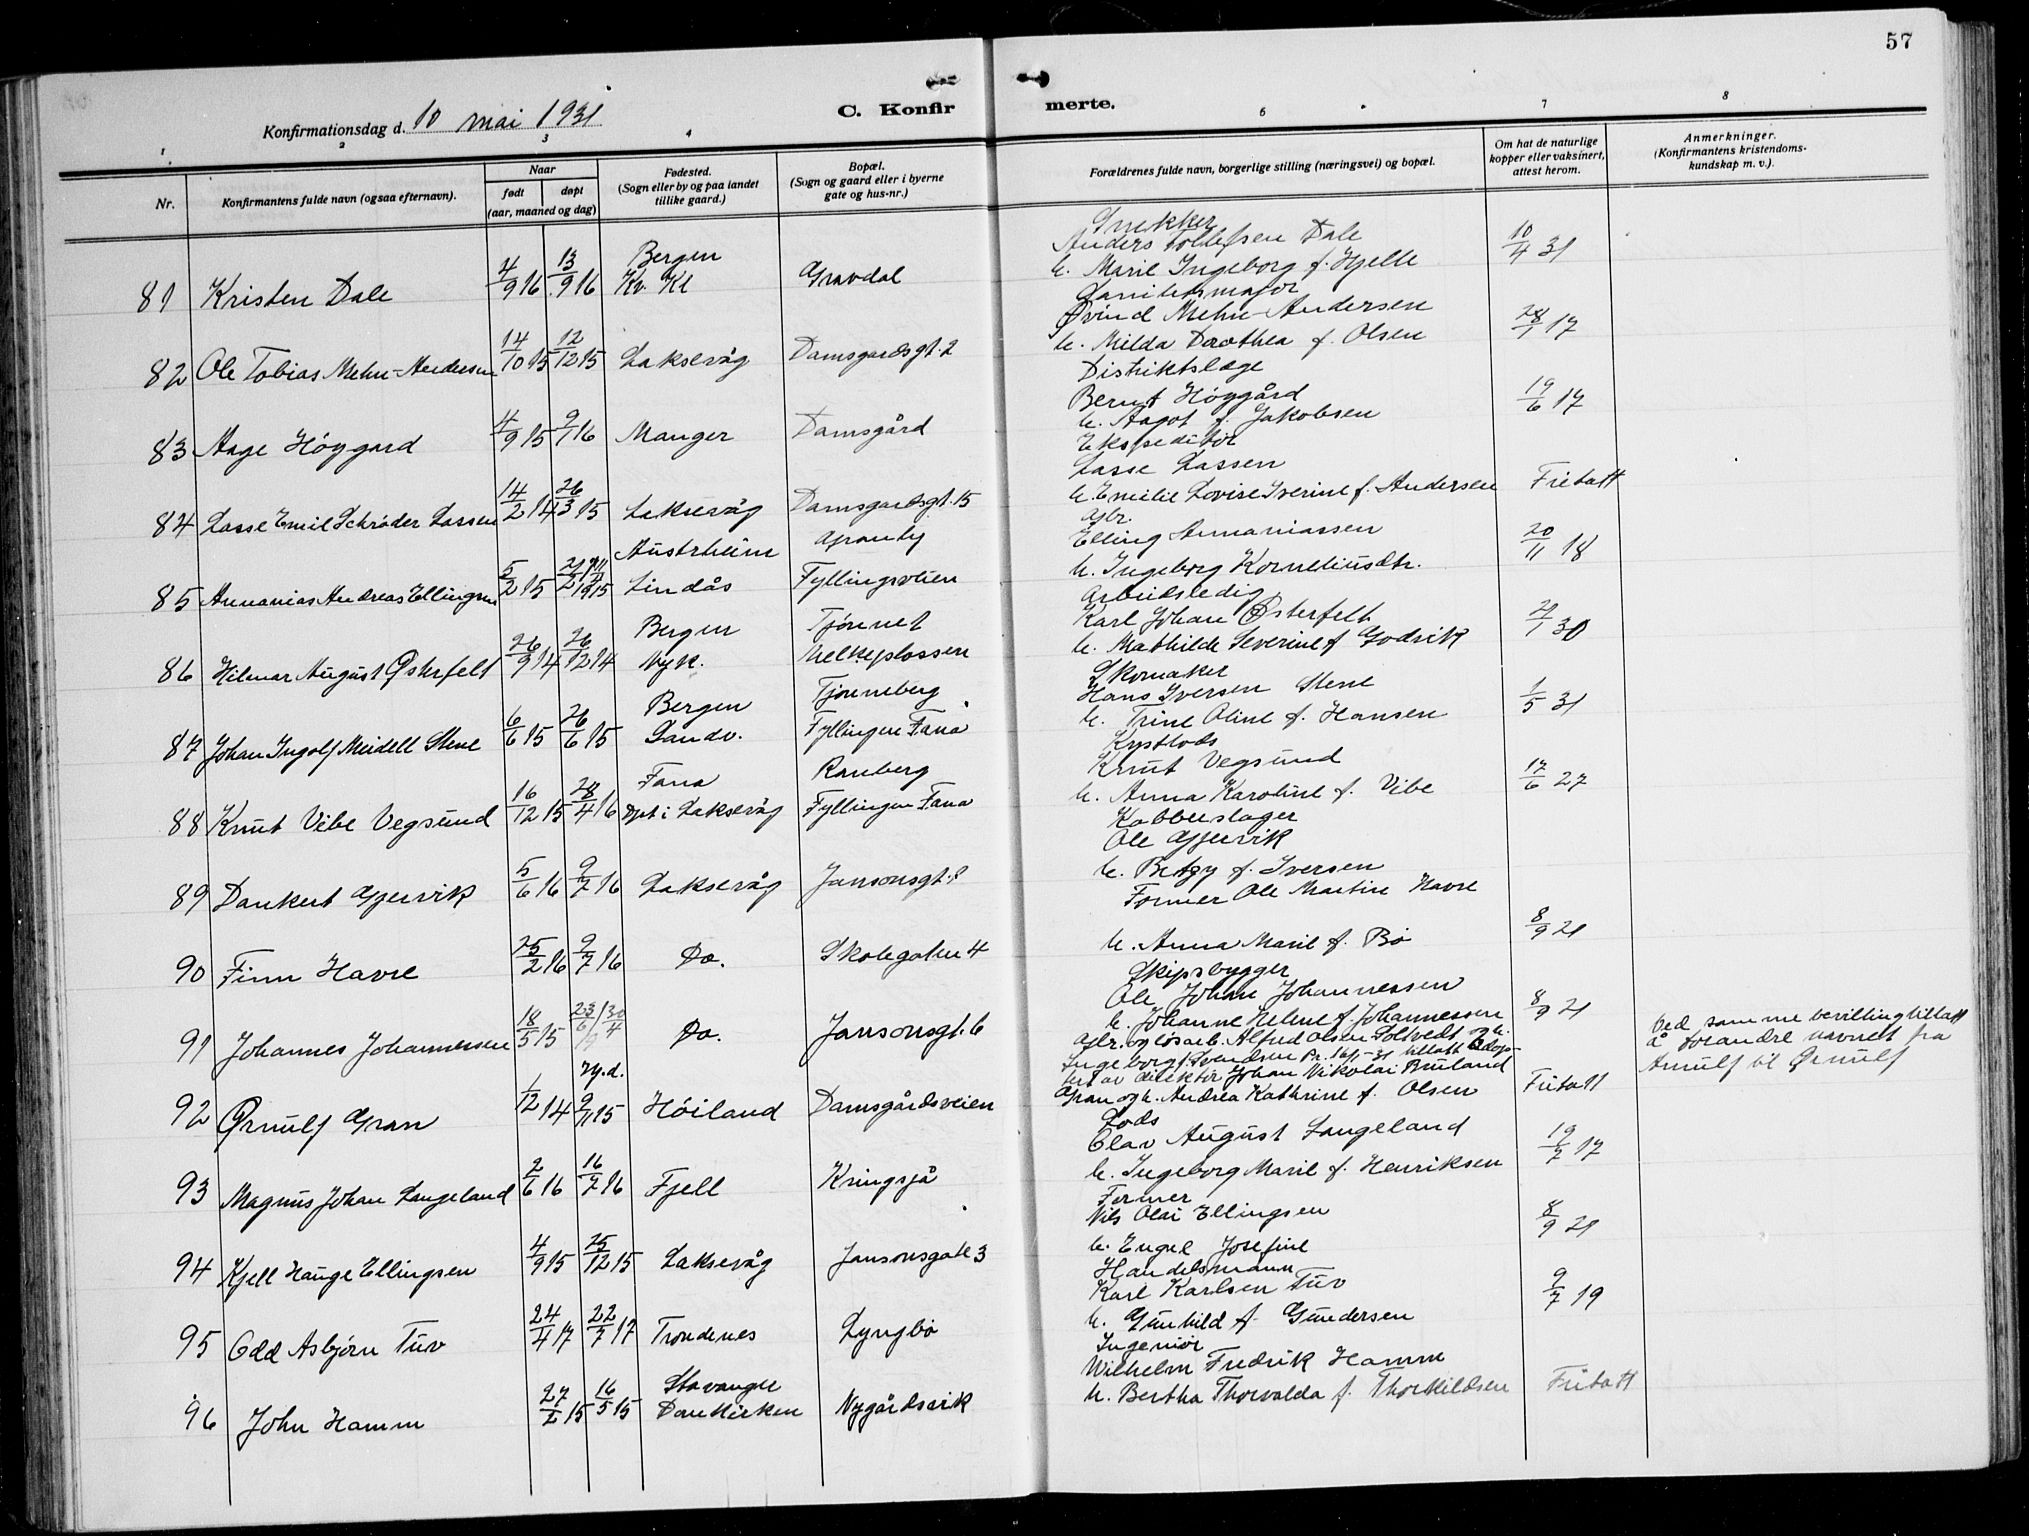 57
Konfirmationsdag d. 10 mai 1931
C. Konfirmerte.
1 2 3 4 6 7 8
Nr.
Konfirmantens fulde navn (ogsaa efternavn).
Naar
født
døpt
(aar, maaned og dag)
Fødested.
(Sogn eller by og paa landet
tillike gaard.)
Bopæl.
(Sogn og gaard eller i byerne
gate og hus-nr.)
Forældrenes fulde navn, borgerlige stilling (næringsvei) og bopæl.
Om hat de naturlige
kopper eller vaksinert,
attest herom.
Anmerkninger.
(Konfirmantens kristendoms-
kundskap m. v.).
81 Kristen Dale 4/9 16 13/9 16 Bergen Kr. Kl Gravdal
Snekker
Anders Tollefsen Dale
h. Marie Ingeborg f. Hjelle 10/4 31
82 Ole Tobias Mehn-Andersen 14/10 15 12/12 15 Laksevåg Damsgardsgt. 2
Sanitetsmajor
Øvind Mehn-Andersen
h. Milda Dorothea f. Olsen 28/1 17
83 Aage Höygard 4/9 15 9/1 16 Manger Damsgård
Distriktslæge
Bernt Höygård
h. Aagot f. Jakobsen 19/6 17
84 Lasse Emil Schröder Lassen 14/2 14 26/3 15 Laksevåg Damsgardsgt. 15
Ekspeditör
Lasse Lassen
h. Emilie Lovise Iverine f. Andersen Fritatt
85 Annanias Andreas Ellingsen 5/2 15 Austrheim Lindås Granly Fyllingsveien
Gbr.
Elling Annaniassen
h. Ingeborg Korneliusdtr. 20/11 18
86 Hilmar August Østerfelt 26/9 14 26/12 14 Bergen Nyk. Tjönnet Melkeplassen
Arbeidsledig
Karl Johan Østerfelt
h. Mathilde Severine f. Godvik 21/1 30
87 Johan Ingolf Meidell Stene 6/6 15 26/6 15 Bergen Sandv. Tjönneberg Fyllingen Fana
Skomaker
Hans Iversen Stene
h. Trine Oline f. Hansen 1/5 31
88 Knut Vibe Vegsund 16/12 15 28/4 16 Fana Döpt i Laksevåg Ranberg Fyllingen Fana
Kystlods
Knut Vegsund
h. Anna Karoline f. Vibe 17/6 27
89 Dankert Gjervik 5/6 16 9/7 16 Laksevåg Jansonsgt. 8
Kobberslager
Ole Gjervik
h. Betzy f. Iversen
90 Finn Havre 25/2 16 9/7 16 Do. Skolegaten 4
Former Ole Martin Havre
h. Anna Marie f. Bö 8/9 21
91 Johannes Johannessen 18/5 15 23/6 Do. Jansonsgt. 6
Skipsbygger
Ole Johan Johannessen
h. Johanne Helene f. Johannessen 8/9 21
92 Ørnulf Gran 1/12 14 9/1 15 Höiland Damsgårdsveien
Gbr. og løsarb. Alfred Olsen Foltvedt og h.
Ingeborg f. Svendsen Pr. 16/1-31 tillatt adop-
tert av direktör Johan Nikolai Bruland
Gran og h. Andrea Kathrine f. Olsen Fritatt
Ved samme bevilling tillatt
å forandre navnet fra
Arnulf til Ørnulf
93 Magnus Johan Langeland 2/6 16 16/7 16 Fjell Kringsjå
Lods
Olav August Langeland
h. Ingeborg Marie f. Henriksen 19/7 17
94 Kjell Hauge Ellingsen 4/9 15 25/12 15 Laksevåg Jansonsgate 3
Former
Nils Olai Ellingsen
h. Engel Josefine 8/9 21
95 Odd Asbjörn Tuv 24/4 17 22/7 17 Trondenes Lyngbö
Handelsmann
Karl Karlsen Tuv
h. Gunhild f. Gundersen 9/7 19
96 John Hamm 27/2 15 16/5 15 Stavanger Domkirken Nygårdsvik
Ingeniör
Wilhelm Fredrik Hamm
h. Bertha Thorvalda f. Thorkildsen Fritatt